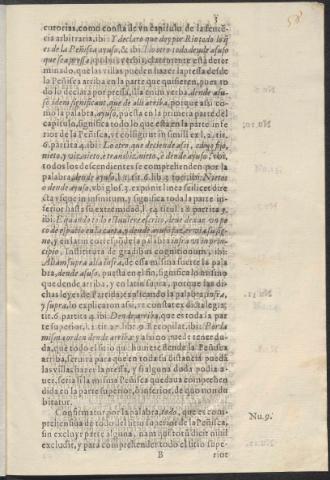 3
58
cutorias, como consta de vn capitulo de la senten-
cia arbitraria, ibi: Y declaro que doy por Rio todo lo q̃
es de la Peñisca ayuso, & ibi: I lo otro todo deyuso
que sea pressa, quibus verbis, claramente està deter
minado, que las villas puedan hazer la pressa desde
la Peñisca arriba en la parte que quisieren, pues to
do lo declara por pressa, illa enim verba, dende ayu-
so idem significant, que de alli arriba, porque assi co-
mo la palabra, ayuso, puesta en la primera parte del
capitulo, significa todo lo que està en la parte infe-
rior de la Peñisca, vt colligitur in simili ex l. 2. tit.
6. partita 4. ibi: Lo otro que deciende assi, como fijo,
nieto, y vizñieto, è trasuiznieto, è dende ayuso: vbi,
todos los descendientes se comprehenden por la
palabra, dende ayuso, l. tit. 6. lib. 3. fori, ibi: Nietos
o dende ayuso, vbi glos. 2. exponit
esta y sque in infinitum, y significa toda la parte in-
ferior hasta su extremidad, l. 14. titul. 18. partita 3.
ibi: E quando todo esto ouiere escrito, deue dexar vn po
co de espacio en la carta, y dende ayuso faz
y en latin corresponde la palabra infra vt in princi-
pio, Institut
Alia in supra alia infra, de essa misma suerte la pala
bra, dende ayuso, puesta en el fin, significa lo mismo
que dende arriba, y en latin supra, porque las di-
chas leyes de Partida tratando las palabras, infra,
y supra, lo explicaron assi, vt constat ex dicta lege 2.
tit. 6. partita 4. ibi: Dende arriba, que es toda la par
te superior, l. 1. tit. 17. lib. 9. Recopilat. ibi: Por la
misma orden dende arriba: y assi no puede tener du-
da, que todo el sitio que huuiere desde la Peñisca
arriba, seruirà para que en toda su distancia pueda
las villas hazer la pressa, y si alguna duda podia a-
uer, seria si la misma Peñisca quedaua comprehen
dida en la parte superior, ò inferior, de quo non du-
bitatur.
Confirmatur por la palabra, todo, que es com-
prehensiua de todo el sitio superior de la Peñisca,
sin excluyr parte alguna, nam qui totũ dicit nihil
excludit, y para comprehender todo el sitio supe-
Nu. 9.
B
rior